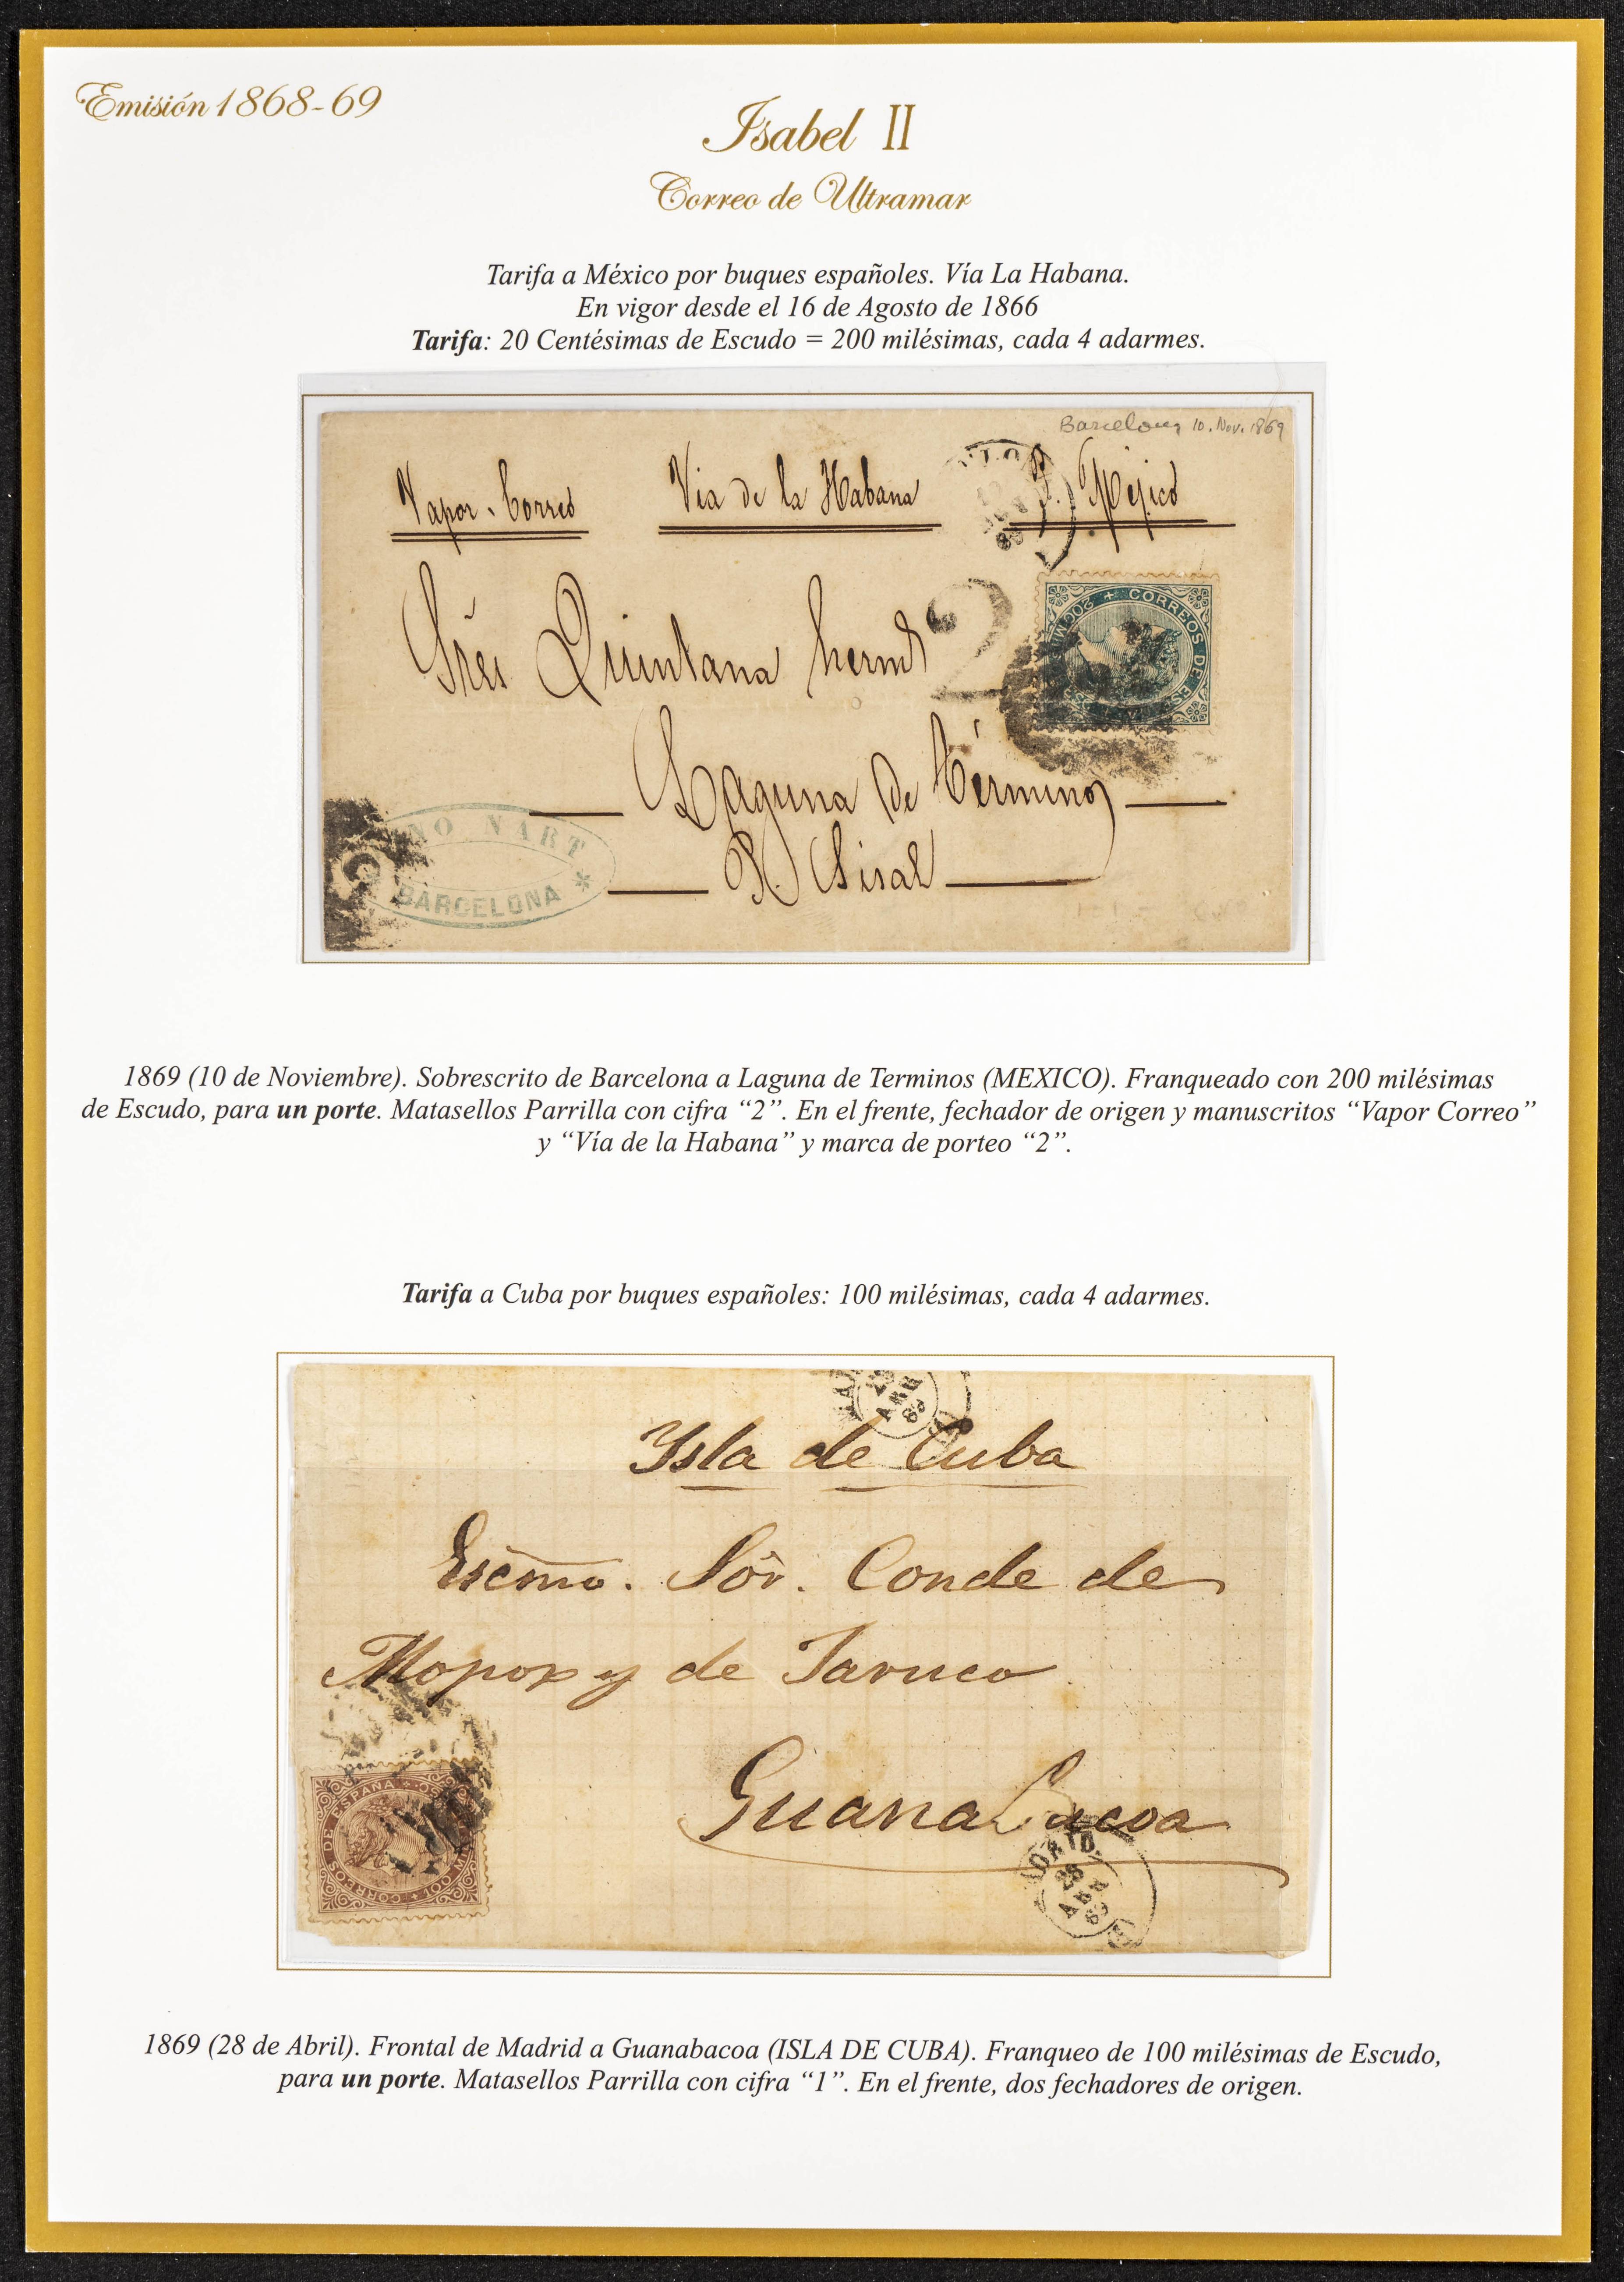 Emisión 1868-69
Isabel II
Correo de Ultramar
Tarifa a México por buques españoles. Vía La Habana.
En vigor desde el 16 de Agosto de 1866
Tarifa: 20 Centésimas de Escudo = 200 milésimas, cada 4 adarmes.
Barcelona 10. Nov. 1869
Vapor-Correo Via de la Habana P. Méjico
2
CORREOS DE
Sres Quintana herms
Laguna de Términos
P. Sisal
NO NART
BARCELONA *
1869 (10 de Noviembre). Sobrescrito de Barcelona a Laguna de Terminos (MEXICO). Franqueado con 200 milésimas
de Escudo, para un porte. Matasellos Parrilla con cifra “2”. En el frente, fechador de origen y manuscritos “Vapor Correo”
y “Vía de la Habana” y marca de porteo “2”.
Tarifa a Cuba por buques españoles: 100 milésimas, cada 4 adarmes.
Ysla de Cuba
Escmo. Sôr. Conde de
Mopox y de Jaruco
Guanabacoa
CORREOS DE ESPAÑA
100 MI
28
1869 (28 de Abril). Frontal de Madrid a Guanabacoa (ISLA DE CUBA). Franqueo de 100 milésimas de Escudo,
para un porte. Matasellos Parrilla con cifra “1”. En el frente, dos fechadores de origen.